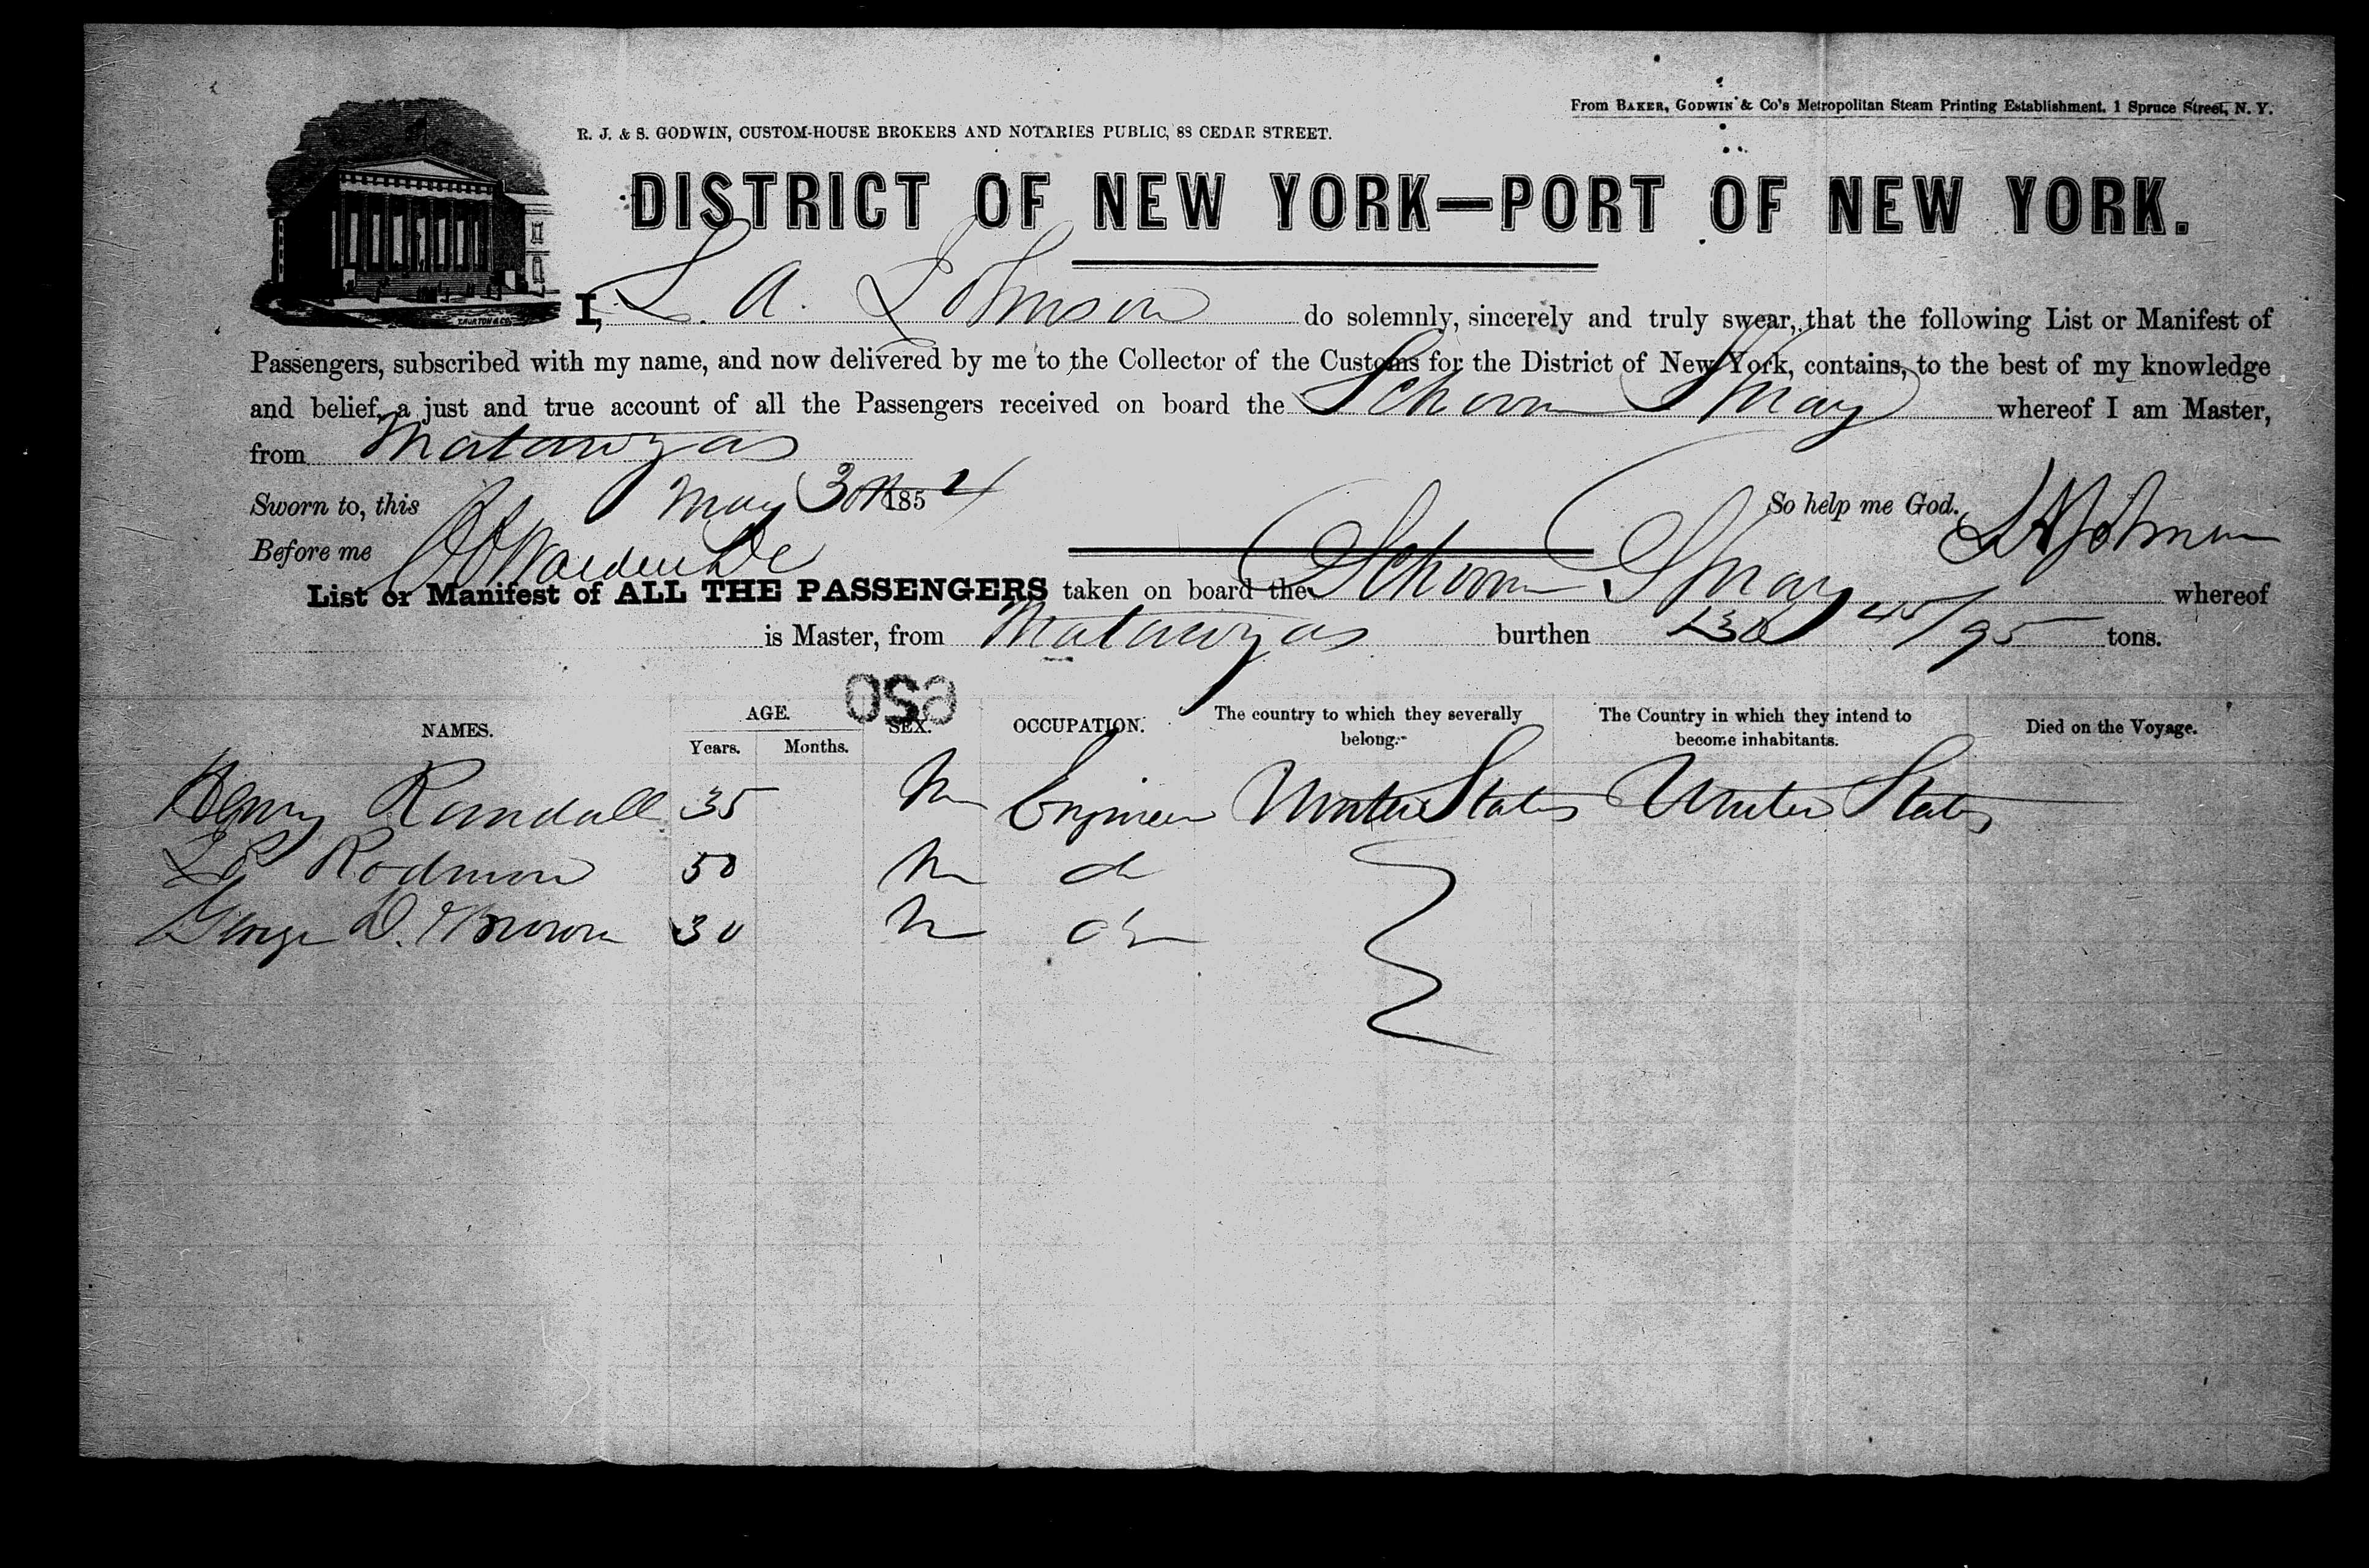 From BAKER, GODWIN & Co's Metropolitan Steam Printing Establishment, 1 Spruce Street, N. Y.
R. J. & S. GODWIN, CUSTOM-HOUSE BROKERS AND NOTARIES PUBLIC, 88 CEDAR STREET.
DISTRICT OF NEW YORK—PORT OF NEW YORK.
I, L. A. Johnson do solemnly, sincerely and truly swear, that the following List or Manifest of
Passengers, subscribed with my name, and now delivered by me to the Collector of the Customs for the District of New York, contains, to the best of my knowledge
and belief, a just and true account of all the Passengers received on board the Schoon May whereof I am Master,
from Matanzas
Sworn to, this May 30th 1854 So help me God. L A Johnson
Before me
List or Manifest of ALL THE PASSENGERS taken on board the Schoon May whereof
is Master, from Matanzas burthen 45/95 tons.
650
NAMES. AGE. SEX. OCCUPATION. The country to which they severally belong. The Country in which they intend to become inhabitants. Died on the Voyage.
Years. Months.
Henry Randall 35 M Engineer United States United States
Rodman 50 M do
George D. Brown 30 M do